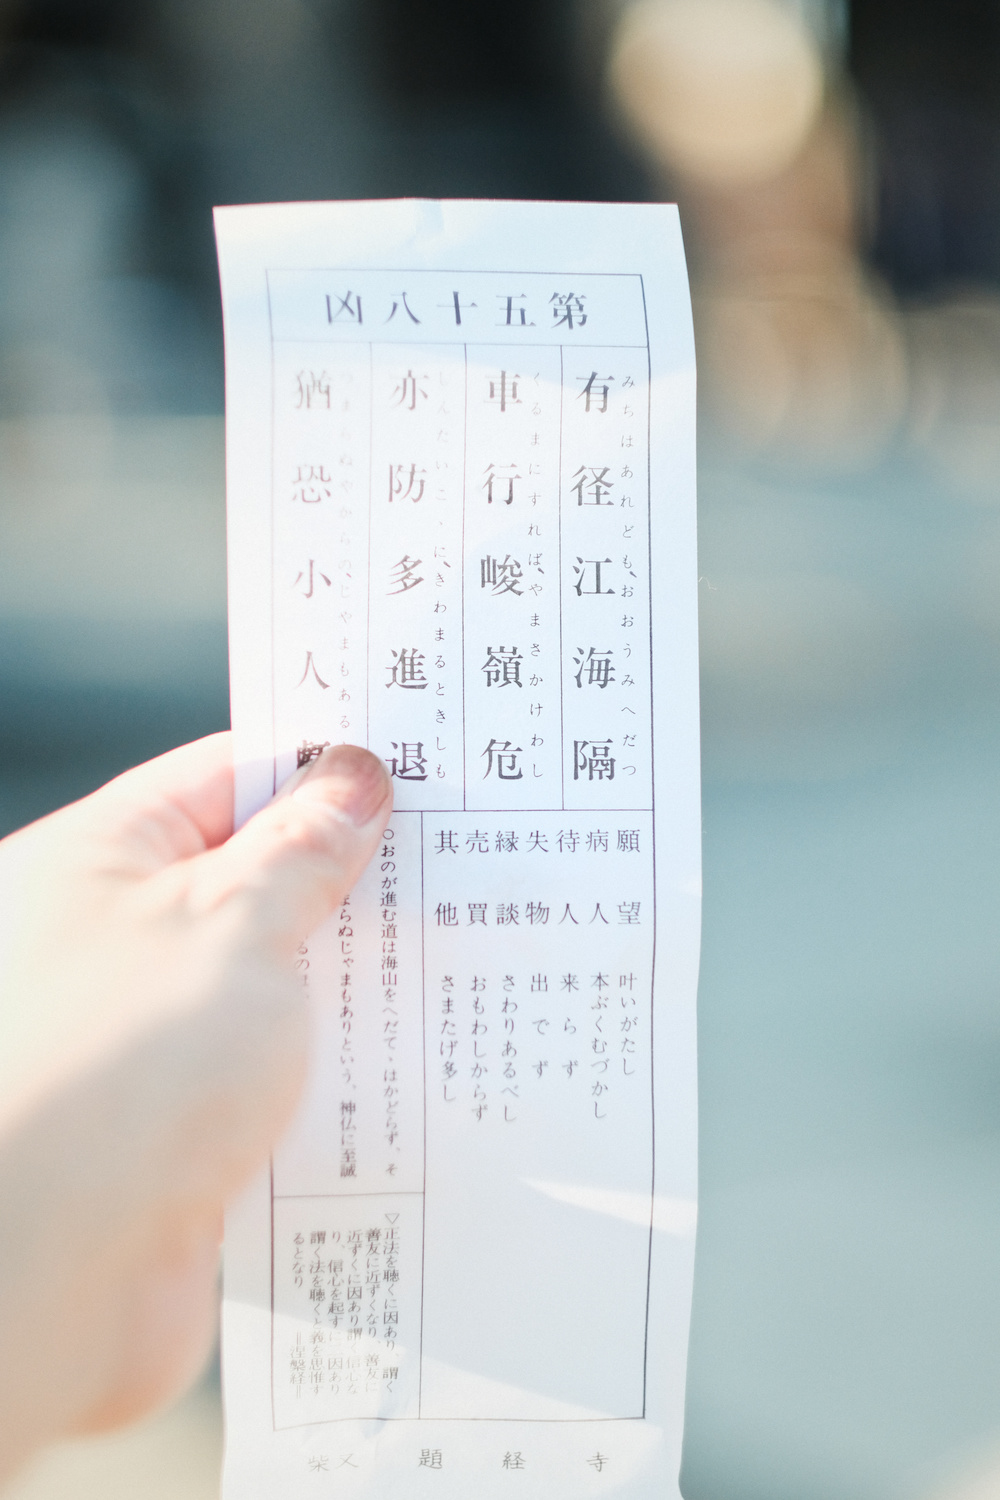 第五十八凶
有径江海隔
みちはあれども、おおうみへだつ
車行峻嶺危
くるまにすれば、やまさかけわし
亦防多進退
に、きわまるときしも
猶恐小人
じゃまもある
願望 叶いがたし
病人 本ぶくむづかし
待人 来らず
失物 出でず
縁談 さわりあるべし
売買 おもわしからず
其他 さまたげ多し
○おのが進む道は海山をへだて、はかどらず、そ
まらぬじゃまもありという、神仏に至誠
るのは、
▽正法を聴くに因あり、謂く
善友に近ずくなり、善友に
近ずくに因あり謂く信心な
り、信心を起すに因あり
謂く法を聴くと義を思惟す
るとなり ＝涅槃経＝
柴又 題経寺